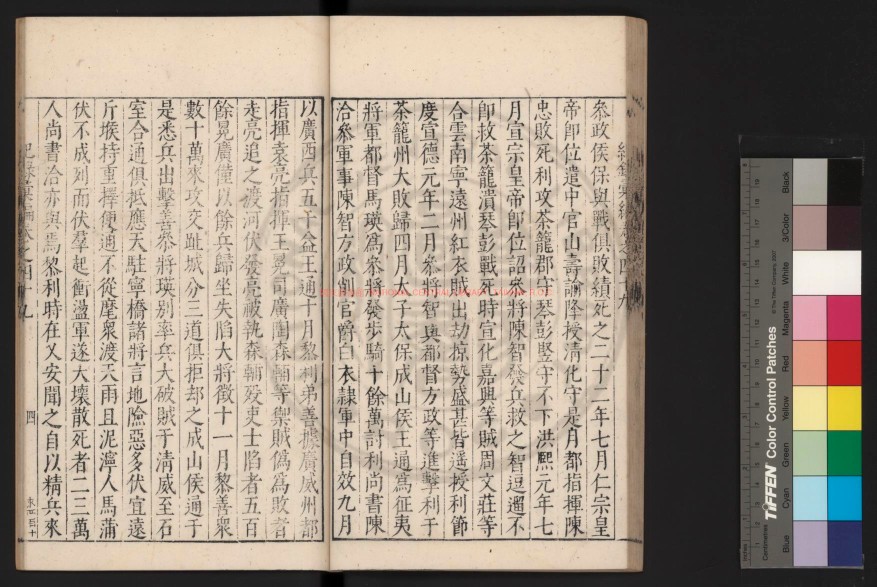 參政侯保與戰俱敗績死之二十二年七月仁宗皇
帝卽位遣中官山壽諭降授淸化守是月都指揮陳
忠敗死利攻茶籠郡守琴彭堅守不下洪熙元年七
月宣宗皇帝卽位詔參將陳智發兵救之智逗遛不
卽救茶籠潰琴彭戰死時宣化嘉興等賊周文莊等
合雲南寧遠州紅衣賊出劫掠勢盛甚皆遥授利節
度宣德元年二月參將智與都督方政等進擊利于
茶籠州大敗歸四月太子太保成山侯王通爲征夷
將軍都督馬瑛爲參將發步騎十餘萬討利尚書陳
洽參軍事陳智方政削官爵白衣隷軍中自效九月
以廣西兵五千益王通十月黎利弟善據廣威州都
指揮袁亮指揮王冕司廣陶森輔等禦賊僞爲敗者
走亮追之渡河伏發亮被執森輔歿吏士陷者五百
餘晃廣僅以餘兵歸坐失陷大將徵十一月黎善衆
數十萬來攻交趾城分三道俱拒却之成山侯通于
是悉兵出擊善參將瑛别率兵大破賊于淸威至石
室合通俱抵應天駐寧橋諸將言地險惡多伏宜遠
斥堠持重擇便通不從麾衆渡天雨且泥濘人馬蒲
伏不成列而伏羣起衝盪軍遂大壞散死者二三萬
人尚書洽亦與焉黎利時在乂安聞之自以精兵來
四
NATIONAL CENTRAL LIBRARY
TIFFEN Color Control Patches
© The Tiffen Company, 2007
Centimetres
Inches
Blue
Cyan
Green
Yellow
Red
Magenta
White
3/Color
Black